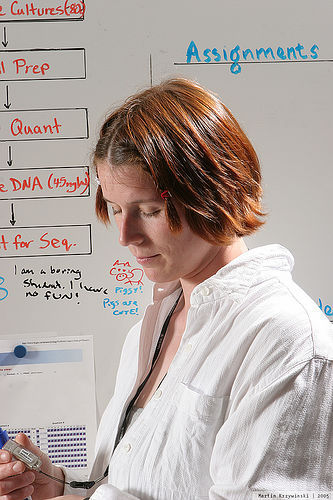 e Cultures(80)
l Prep
Quant
e DNA (45ng/µl)
t for Seq.
Assignments
I am a boring
student. I have
no FUN!
An
Piggy!
Pigs are
CUTE!
Martin Krzywinski | 2005